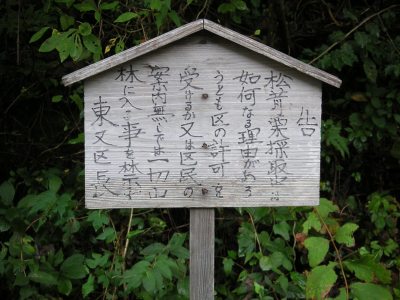 告
松茸、栗採取者は
如何なる理由があろ
うとも区の許可を
受けるか又は区民の
案内無しでは一切山
林に入る事を禁ず
東又区長